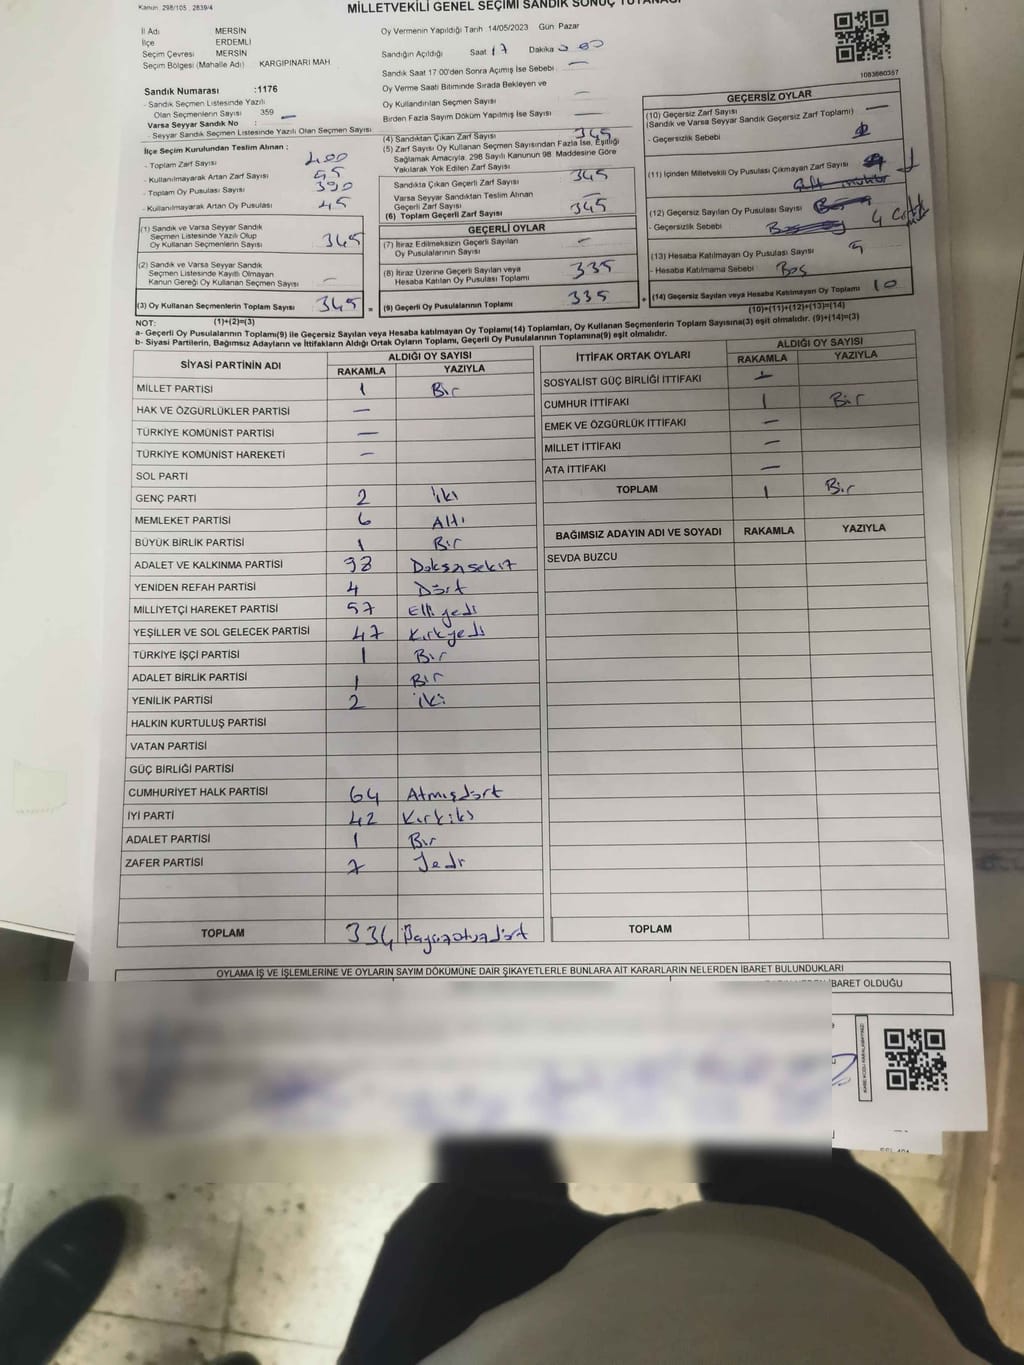 Kanun 298/105 , 2839/4
MİLLETVEKİLİ GENEL SEÇİMİ SANDIK SONUÇ TUTANAĞI
İl Adı MERSİN
İlçe ERDEMLİ
Seçim Çevresi MERSİN
Seçim Bölgesi (Mahalle Adı) KARGIPINARI MAH.
Oy Vermenin Yapıldığı Tarih 14/05/2023 Gün Pazar
Sandığın Açıldığı Saat 17 Dakika 00
Sandık Saat 17:00'den Sonra Açılmış İse Sebebi —
Oy Verme Saati Bitiminde Sırada Bekleyen ve
Oy Kullandırılan Seçmen Sayısı —
Birden Fazla Sayım Döküm Yapılmış İse Sayısı —
1083660357
Sandık Numarası :1176
- Sandık Seçmen Listesinde Yazılı
Olan Seçmenlerin Sayısı 359 —
Varsa Seyyar Sandık No :
- Seyyar Sandık Seçmen Listesinde Yazılı Olan Seçmen Sayısı
İlçe Seçim Kurulundan Teslim Alınan :
- Toplam Zarf Sayısı 400
- Kullanılmayarak Artan Zarf Sayısı 55
- Toplam Oy Pusulası Sayısı 390
- Kullanılmayarak Artan Oy Pusulası 45
(1) Sandık ve Varsa Seyyar Sandık
Seçmen Listesinde Yazılı Olup
Oy Kullanan Seçmenlerin Sayısı 345
(2) Sandık ve Varsa Seyyar Sandık
Seçmen Listesinde Kayıtlı Olmayan
Kanun Gereği Oy Kullanan Seçmen Sayısı —
(3) Oy Kullanan Seçmenlerin Toplam Sayısı 345 =
(1)+(2)=(3)
(4) Sandıktan Çıkan Zarf Sayısı 345
(5) Zarf Sayısı Oy Kullanan Seçmen Sayısından Fazla İse, Eşitliği
Sağlamak Amacıyla, 298 Sayılı Kanunun 98. Maddesine Göre
Yakılarak Yok Edilen Zarf Sayısı
Sandıkta Çıkan Geçerli Zarf Sayısı 345
Varsa Seyyar Sandıktan Teslim Alınan
Geçerli Zarf Sayısı
(6) Toplam Geçerli Zarf Sayısı 345
GEÇERLİ OYLAR
(7) İtiraz Edilmeksizin Geçerli Sayılan
Oy Pusulalarının Sayısı —
(8) İtiraz Üzerine Geçerli Sayılan veya
Hesaba Katılan Oy Pusulası Toplamı 335
(9) Geçerli Oy Pusulalarının Toplamı 335 +
GEÇERSİZ OYLAR
(10) Geçersiz Zarf Sayısı —
(Sandık ve Varsa Seyyar Sandık Geçersiz Zarf Toplamı)
- Geçersizlik Sebebi
(11) İçinden Milletvekili Oy Pusulası Çıkmayan Zarf Sayısı
(12) Geçersiz Sayılan Oy Pusulası Sayısı
- Geçersizlik Sebebi
(13) Hesaba Katılmayan Oy Pusulası Sayısı 9
- Hesaba Katılmama Sebebi Boş
(14) Geçersiz Sayılan veya Hesaba Katılmayan Oy Toplamı 10
(10)+(11)+(12)+(13)=(14)
NOT:
a- Geçerli Oy Pusulalarının Toplamı(9) ile Geçersiz Sayılan veya Hesaba katılmayan Oy Toplamı(14) Toplamları, Oy Kullanan Seçmenlerin Toplam Sayısına(3) eşit olmalıdır. (9)+(14)=(3)
b- Siyasi Partilerin, Bağımsız Adayların ve İttifakların Aldığı Ortak Oyların Toplamı, Geçerli Oy Pusulalarının Toplamına(9) eşit olmalıdır.
SİYASİ PARTİNİN ADI ALDIĞI OY SAYISI
RAKAMLA YAZIYLA
MİLLET PARTİSİ 1 Bir
HAK VE ÖZGÜRLÜKLER PARTİSİ —
TÜRKİYE KOMÜNİST PARTİSİ —
TÜRKİYE KOMÜNİST HAREKETİ —
SOL PARTİ
GENÇ PARTİ 2 İki
MEMLEKET PARTİSİ 6 Altı
BÜYÜK BİRLİK PARTİSİ 1 Bir
ADALET VE KALKINMA PARTİSİ 98 Doksansekiz
YENİDEN REFAH PARTİSİ 4 Dört
MİLLİYETÇİ HAREKET PARTİSİ 57 Elli yedi
YEŞİLLER VE SOL GELECEK PARTİSİ 47 Kırkyedi
TÜRKİYE İŞÇİ PARTİSİ 1 Bir
ADALET BİRLİK PARTİSİ 1 Bir
YENİLİK PARTİSİ 2 iki
HALKIN KURTULUŞ PARTİSİ
VATAN PARTİSİ
GÜÇ BİRLİĞİ PARTİSİ
CUMHURİYET HALK PARTİSİ 64 Atmışdört
İYİ PARTİ 42 Kırkiki
ADALET PARTİSİ 1 Bir
ZAFER PARTİSİ 7 Yedi
TOPLAM 334
İTTİFAK ORTAK OYLARI ALDIĞI OY SAYISI
RAKAMLA YAZIYLA
SOSYALİST GÜÇ BİRLİĞİ İTTİFAKI —
CUMHUR İTTİFAKI 1 Bir
EMEK VE ÖZGÜRLÜK İTTİFAKI —
MİLLET İTTİFAKI —
ATA İTTİFAKI —
TOPLAM 1 Bir
BAĞIMSIZ ADAYIN ADI VE SOYADI RAKAMLA YAZIYLA
SEVDA BUZCU
TOPLAM
OYLAMA İŞ VE İŞLEMLERİNE VE OYLARIN SAYIM DÖKÜMÜNE DAİR ŞİKAYETLERLE BUNLARA AİT KARARLARIN NELERDEN İBARET BULUNDUKLARI
İBARET OLDUĞU